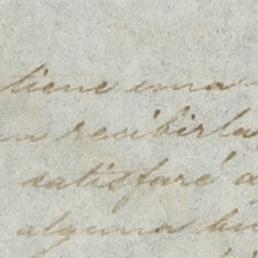 tiene una
recibirla
satisfaré a
alguna